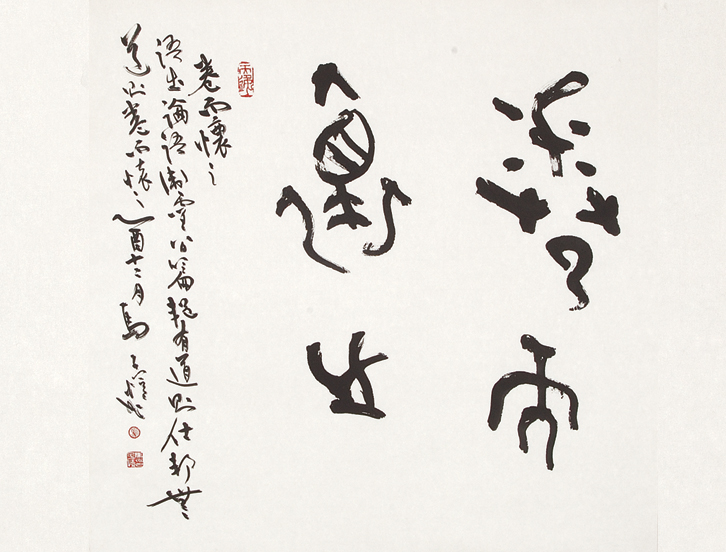 卷而
懷之
卷而懷之
語出論語衛靈公篇邦有道則仕邦無
道則卷而懷之乙酉十二月馬